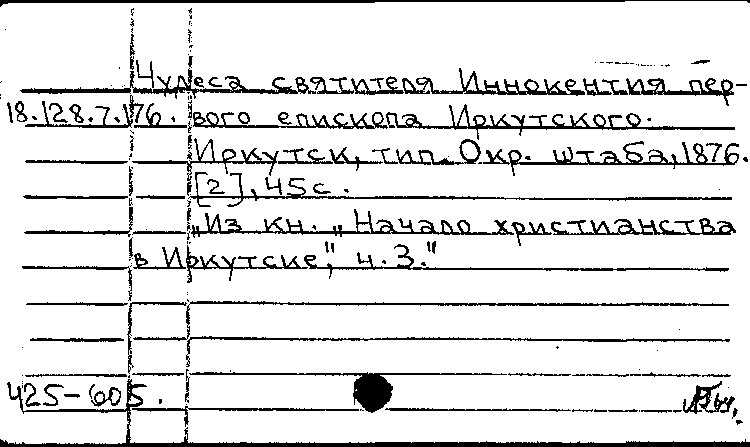 Чудеса святителя Иннокентия пер-
18.128.7.176. вого епископа Иркутского.
Иркутск, тип. Окр. штаба, 1876.
[2], 45 с.
„Из кн. „Начало христианства
в Иркутске", ч. 3."
425-605.